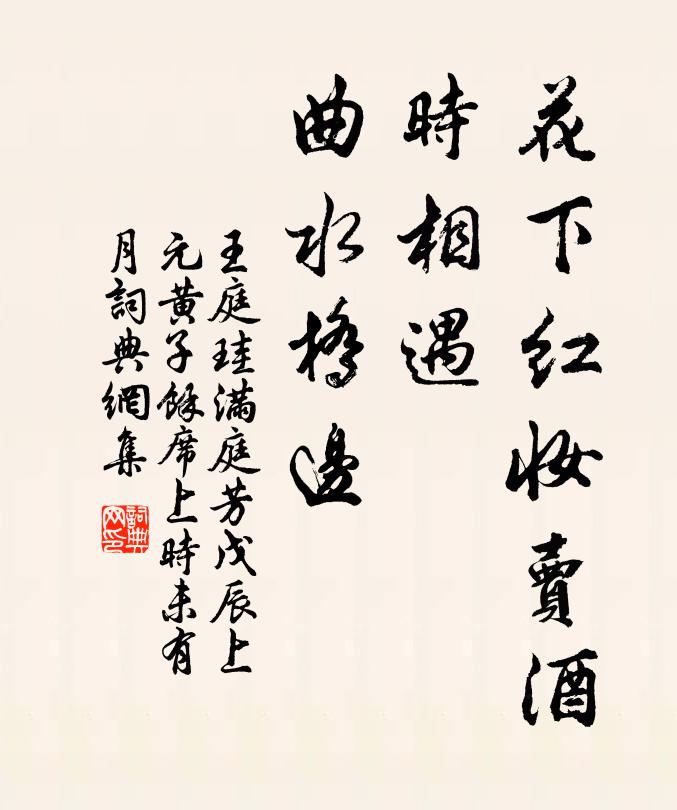 花下红妆賣酒
時相遇
曲水橋邊
王庭珪滿庭芳戊辰上
元黄子餘席上時未有
月詞典網集
詞典网印